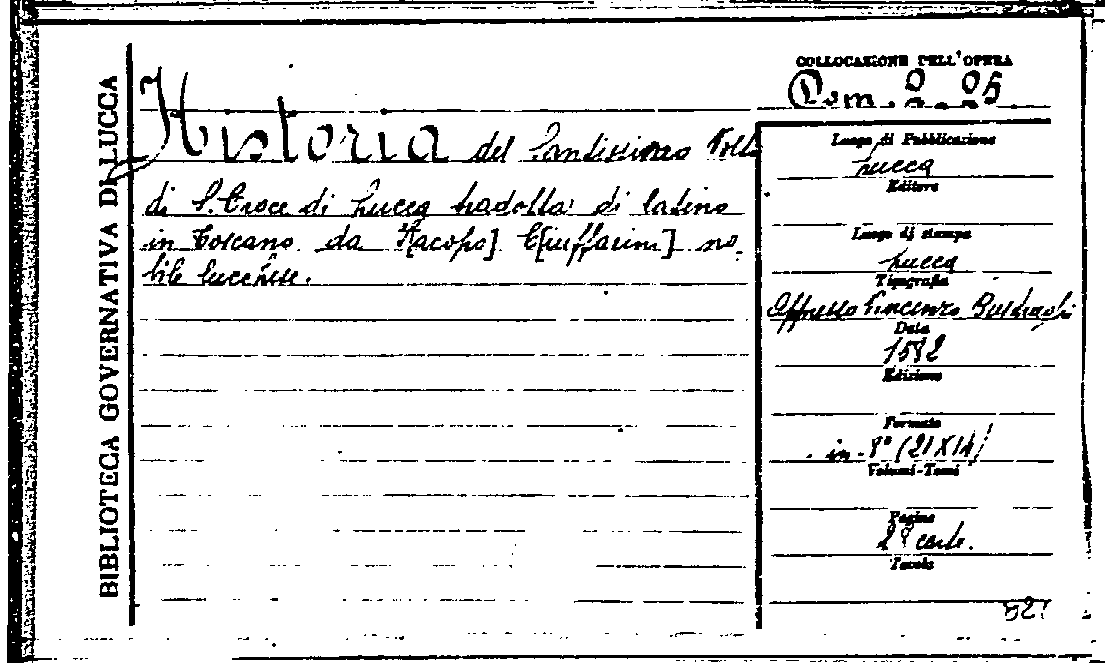 BIBLIOTECA GOVERNATIVA DI LUCCA
COLLOCAZIONE DELL'OPERA
Historia del Santissimo Volto
di S. Croce di Lucca tradotta di latino
in toscano da I[acopo] C[iuffarini] no-
bile lucchese.
Luogo di Pubblicazione
Lucca
Editore
Luogo di stampa
Lucca
Tipografia
appresso Vincenzo Busdraghi
Data
1582
Edizione
Formato
in-8° (21X14)
Volumi-Tomi
Pagine
carte.
Tavole